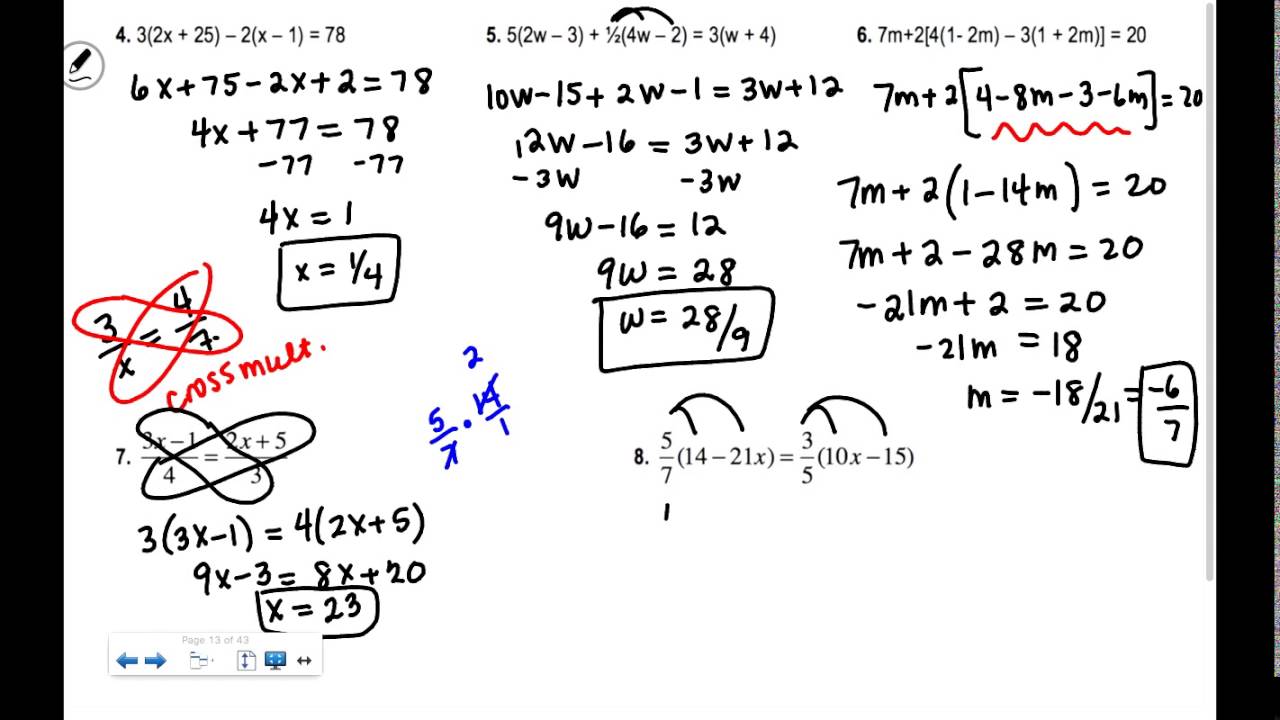 4. 3(2x + 25) – 2(x – 1) = 78
6x+75-2x+2=78
4x+77=78
-77 -77
4x=1
x=1/4
5. 5(2w – 3) + ½(4w – 2) = 3(w + 4)
10w-15+2w-1=3w+12
12w-16=3w+12
-3w -3w
9w-16=12
9w=28
w=28/9
6. 7m+2[4(1- 2m) – 3(1 + 2m)] = 20
7m+2[4-8m-3-6m]=20
7m+2(1-14m)=20
7m+2-28m=20
-21m+2=20
-21m=18
m=-18/21=-6/7
3/x=4/7
cross mult.
7. 3x−1/4 = 2x+5/3
3(3x-1)=4(2x+5)
9x-3=8x+20
x=23
2
5/7·14/1
8. 5/7(14−21x)=3/5(10x−15)
1
Page 13 of 43